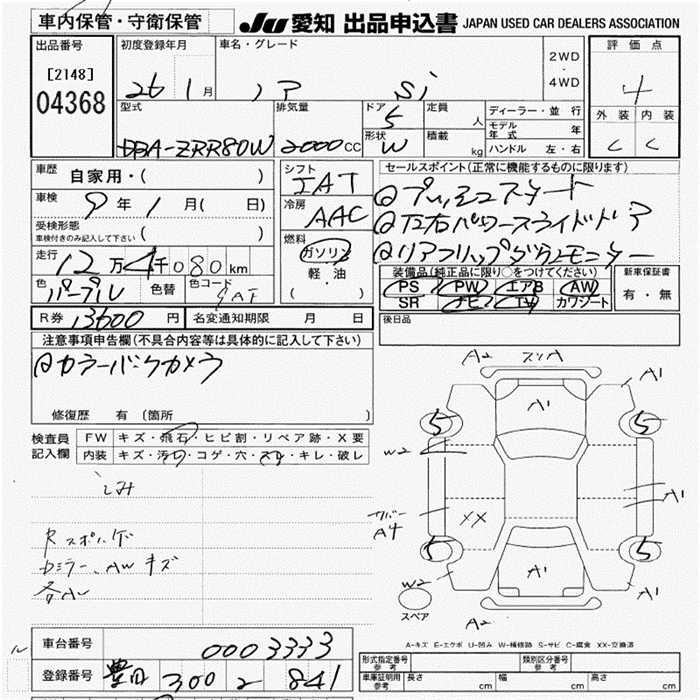 車内保管・守衛保管
JU 愛知 出品申込書 JAPAN USED CAR DEALERS ASSOCIATION
出品番号
[2148]
04368
初度登録年月
26 1 月
車名・グレード
ノア Si
2WD
・
4WD
評価点
4
外装 内装
C C
型式
DBA-ZRR80W
排気量
2000 CC
ドア
5
形状
W
定員
人
積載
kg
ディーラー・並行
モデル年式 年
ハンドル 左・右
車歴
自家用・( )
車検
9年 1月( 日)
受検形態
車検付きのみ記入して下さい ( )
走行
12万4千080km
色
パープル
色替
色コード
9AF
シフト
IAT
冷房
AAC
燃料
ガソリン
軽・油
( )
セールスポイント(正常に機能するものに限ります)
@プッシュスタート
@左右パワースライドドア
@リアフリップダウンモニター
装備品(純正品に限り○をつけてください)
PS PW エアB AW
SR ナビ TV カワシート
新車保証書
有・無
R券 13600 円
名変通知期限 月 日
後日品
注意事項申告欄(不具合内容等は具体的に記入して下さい)
@カラーバックカメラ
修復歴 有 (箇所 )
検査員記入欄
FW キズ・飛石・ヒビ割・リペア跡・X要
内装 キズ・汚れ・コゲ・穴・スレ・キレ・破レ
シミ
Rスポイルゲ
ドミラー、AWキズ
各AU
A2 スリA
A1
A1
5 5
W2
A1
カバー
A4
XX
5 5
A1
A1
スペア
A2
A-キズ E-エクボ U-凹み W-補修跡 S-サビ C-腐食 XX-交換済
車台番号
0003333
登録番号
豊田 300 る 841
形式指定番号
参考
類別区分番号
参考
車庫証明用
参考
長さ cm
幅 cm
高さ cm